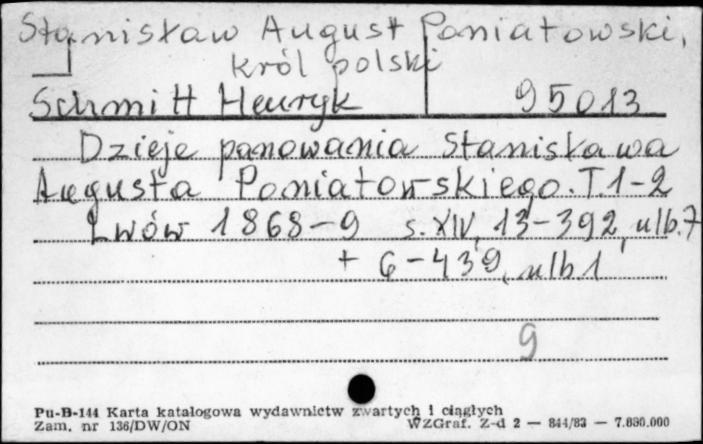 Stanisław August Poniatowski,
król polski
Schmitt Henryk 95013
Dzieje panowania Stanisława
Augusta Poniatowskiego. T. 1-2
Lwów 1868-9 s. XIV, 13-392, ulb. 7
+ 6-439, ulb 1
9
Pu-B-144 Karta katalogowa wydawnictw zwartych i ciągłych
Zam. nr 136/DW/ON WZGraf. Z-d 2 — 844/83 — 7.890.000